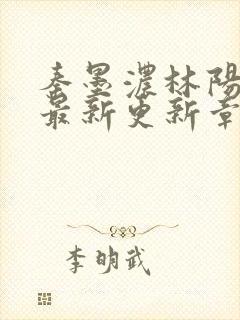 秦墨濃林陽
最新更新章
李明武